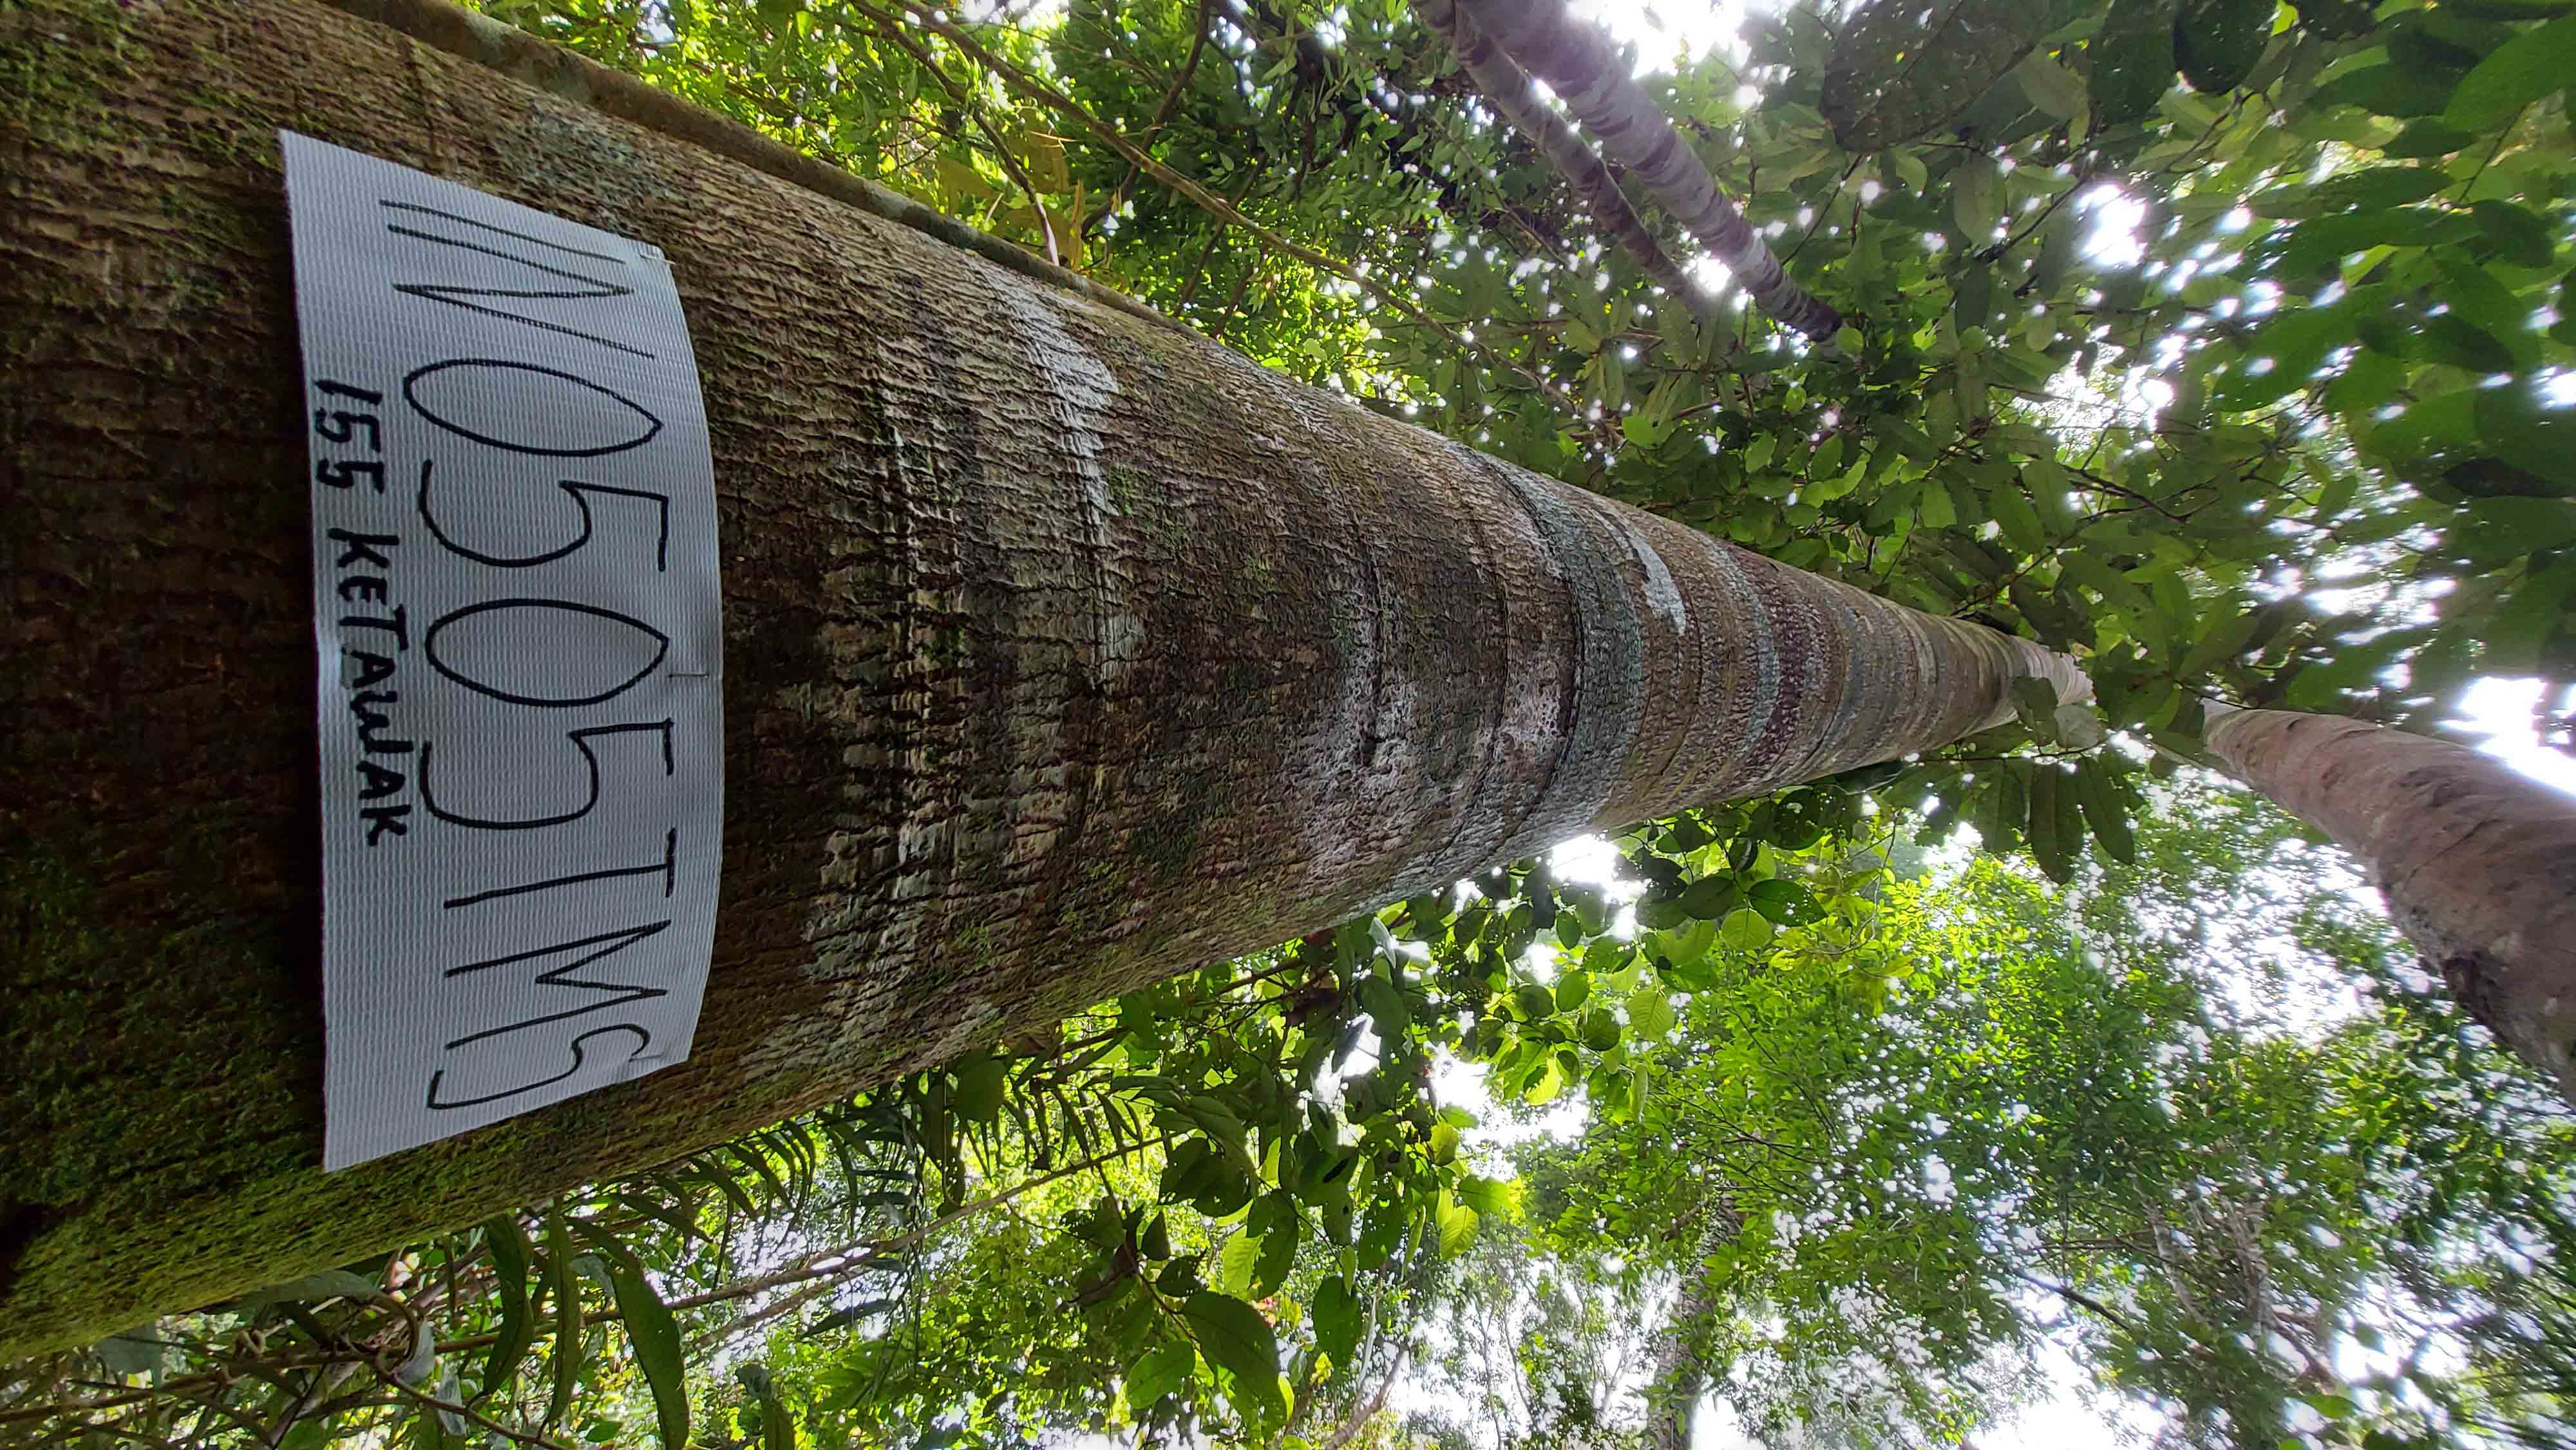 IN0505TMS
155 KETAWAK